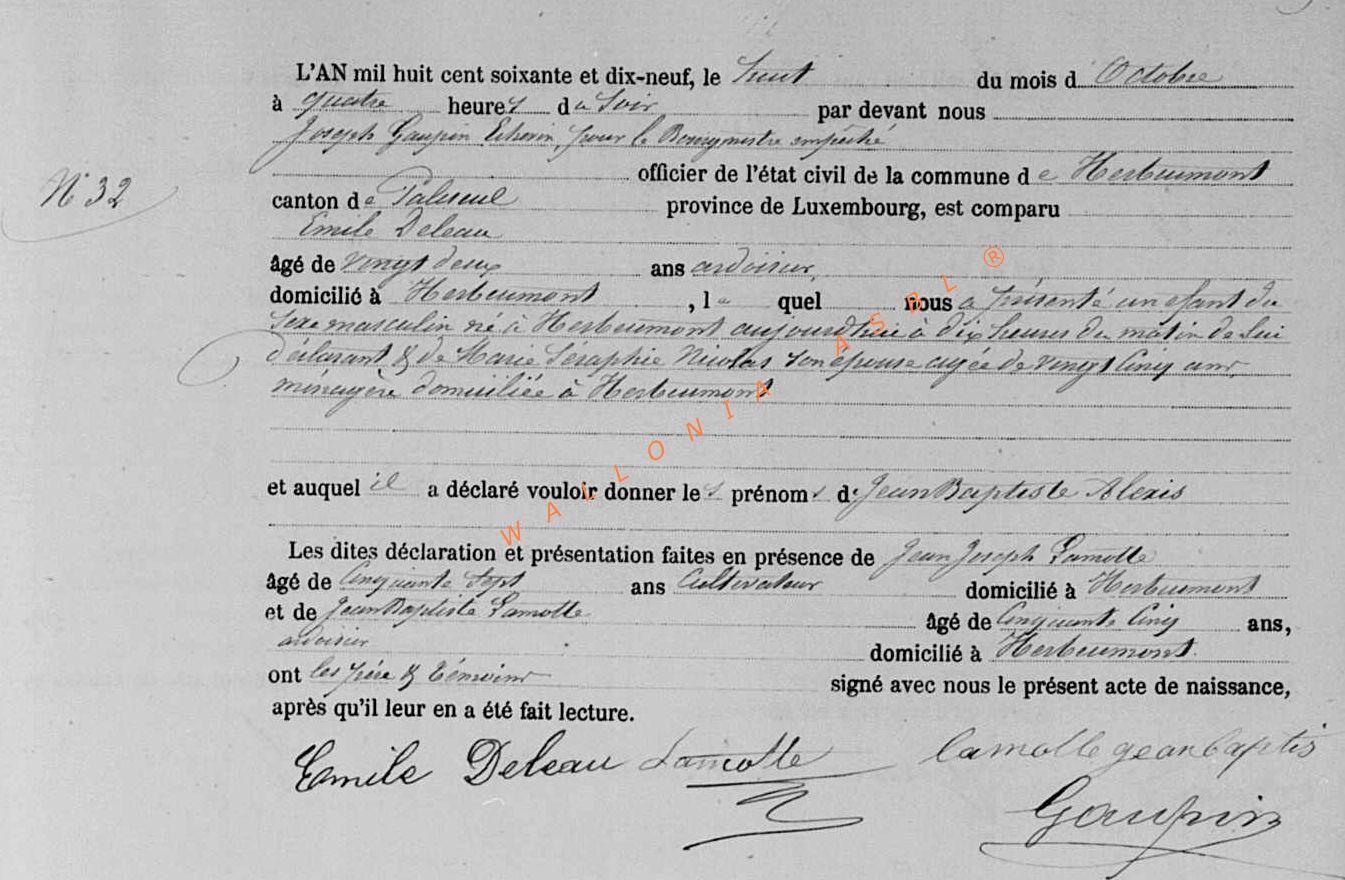 L'AN mil huit cent soixante et dix-neuf, le huit du mois d Octobre
à quatre heures du Soir par devant nous
Joseph Gaupin Echevin, pour le Bourgmestre empêché
officier de l'état civil de la commune de Herbeumont
N° 32
canton de Paliseul province de Luxembourg, est comparu
Emile Deleau
âgé de vingt deux ans ardoisier,
domicilié à Herbeumont, le quel nous a présenté un efant du
Sexe masculin né à Herbeumont aujourdhui à dix heures du matin de lui
déclarant & de Marie Séraphie Nicolas son épouse agée de vingt cinq ans,
ménagère domiciliée à Herbeumont
et auquel il a déclaré vouloir donner les prénoms de Jean Baptiste Alexis
Les dites déclaration et présentation faites en présence de Jean Joseph Lamotte
âgé de Cinquante Sept ans Cultivateur domicilié à Herbeumont
et de Jean Baptiste Lamotte âgé de Cinquante Cinq ans,
ardoisier domicilié à Herbeumont.
ont les père & témoins signé avec nous le présent acte de naissance,
après qu'il leur en a été fait lecture.
Emile Deleau Lamotte lamotte gean baptis
Gaupin
WALLONIA ASBL ®